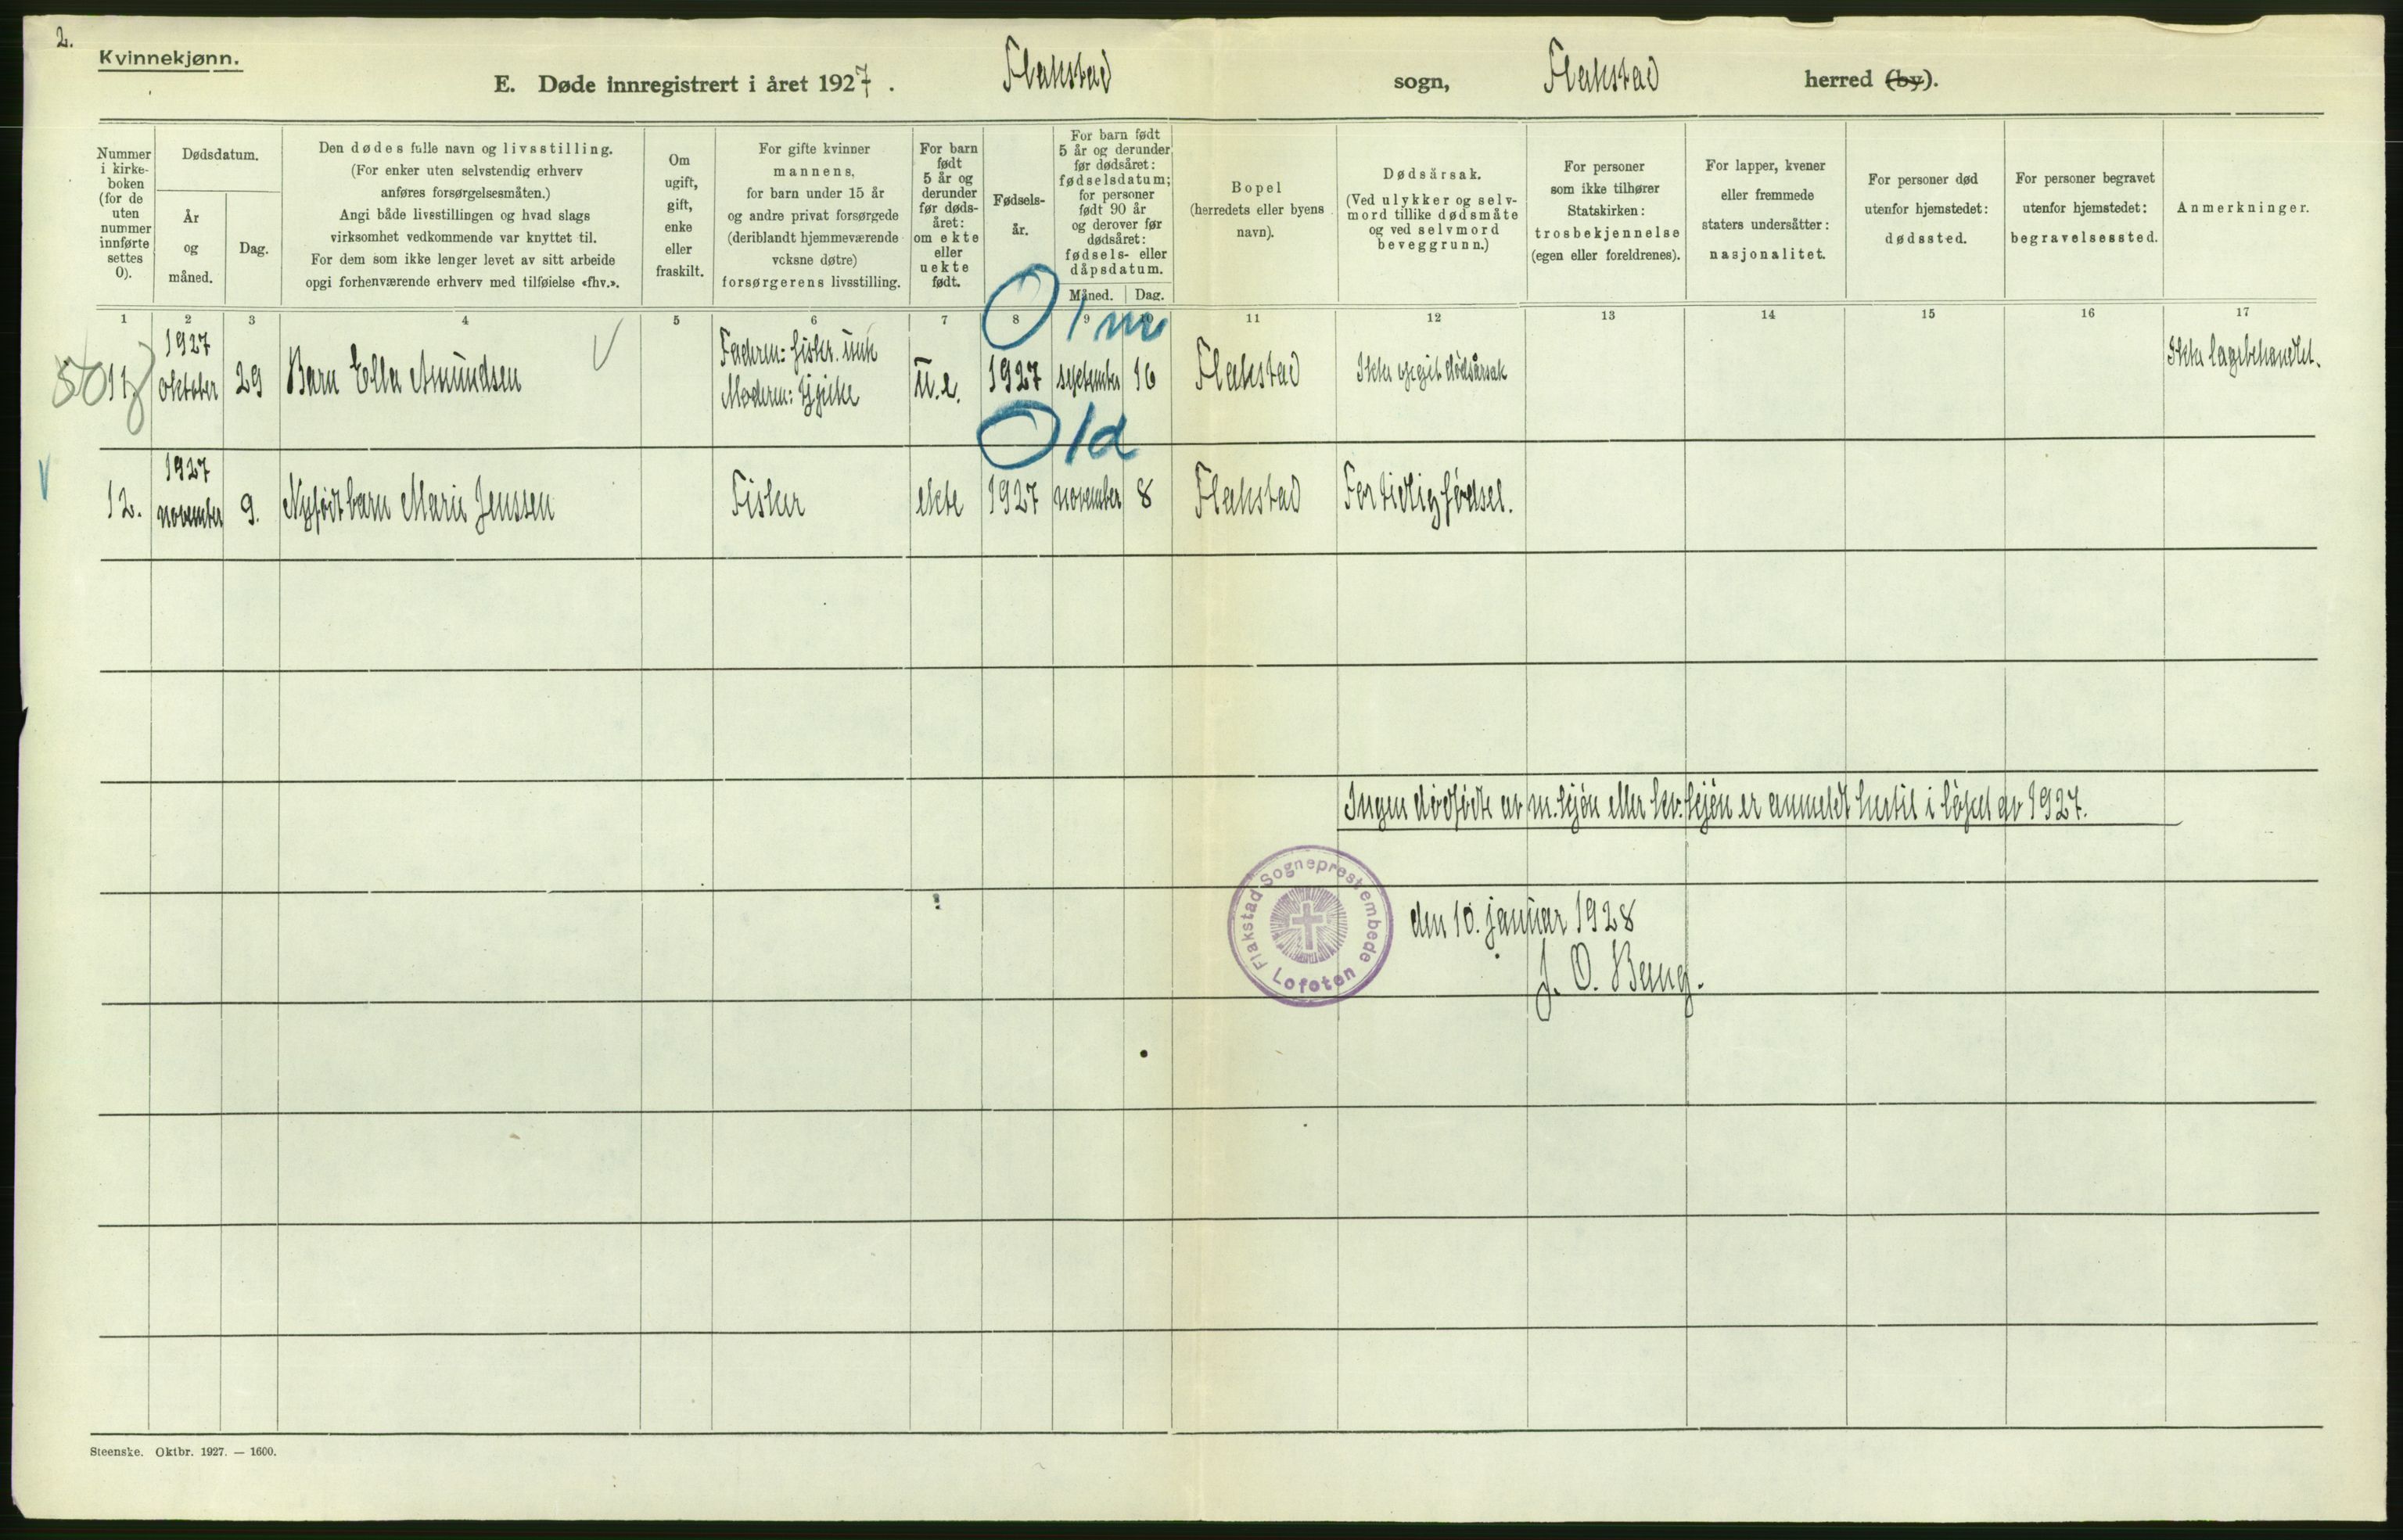 2.
Kvinnekjønn.
E. Døde innregistrert i året 1927. Flakstad sogn, Flakstad herred (by).
Nummer
i kirke-
boken
(for de
uten
nummer
innførte
settes
0).
Dødsdatum.
År
og
måned.
Dag.
Den dødes fulle navn og livsstilling.
(For enker uten selvstendig erhverv
anføres forsørgelsesmåten.)
Angi både livsstillingen og hvad slags
virksomhet vedkommende var knyttet til.
For dem som ikke lenger levet av sitt arbeide
opgi forhenværende erhverv med tilføielse «fhv.».
Om
ugift,
gift,
enke
eller
fraskilt.
For gifte kvinner
mannens,
for barn under 15 år
og andre privat forsørgede
(deriblandt hjemmeværende
vcksne døtre)
forsørgerens livsstilling.
For barn
født
5 år og
derunder
før døds-
året:
om ekte
eller
uekte
født.
Fødsels-
år.
For barn født
5 år og derunder
før dødsåret:
fødselsdatum;
for personer
født 90 år
og derover før
dødsåret:
fødsels- eller
dåpsdatum.
Måned. Dag.
Bopel
(herredets eller byens
navn).
Dødsårsak.
(Ved ulykker og selv-
mord tillike dødsmåte
og ved selvmord
beveggrunn.)
For personer
som ikke tilhører
Statskirken:
trosbekjennelse
(egen eller foreldrenes).
For lapper, kvener
eller fremmede
staters undersåtter:
nasjonalitet.
For personer død
utenfor hjemstedet:
dødssted.
For personer begravet
utenfor hjemstedet:
begravelsessted.
Anmerkninger.
1 2 3 4 5 6 7 8 9 10 11 12 13 14 15 16 17
0 1 m
11 1927 oktober 29 Barn Ella Amundsen Faderen: fisker. Moderen: u.e. 1927 september 16 Flakstad Ikke opgit dødsårsak Ikke lægebehandlet.
0 1d
12. 1927 november 9. Nyfødt barn Marie Jenssen Fisker ekte 1927 november 8 Flakstad For tidlig fødsel.
Ingen dødfødte av m.kjøn eller kv.kjøn er anmeldt hertil i løpet av 1927.
Flakstad Sogneprestembede
Lofoten
den 10. januar 1928
J. O. Bang.
Steenske. Oktbr. 1927. — 1600.